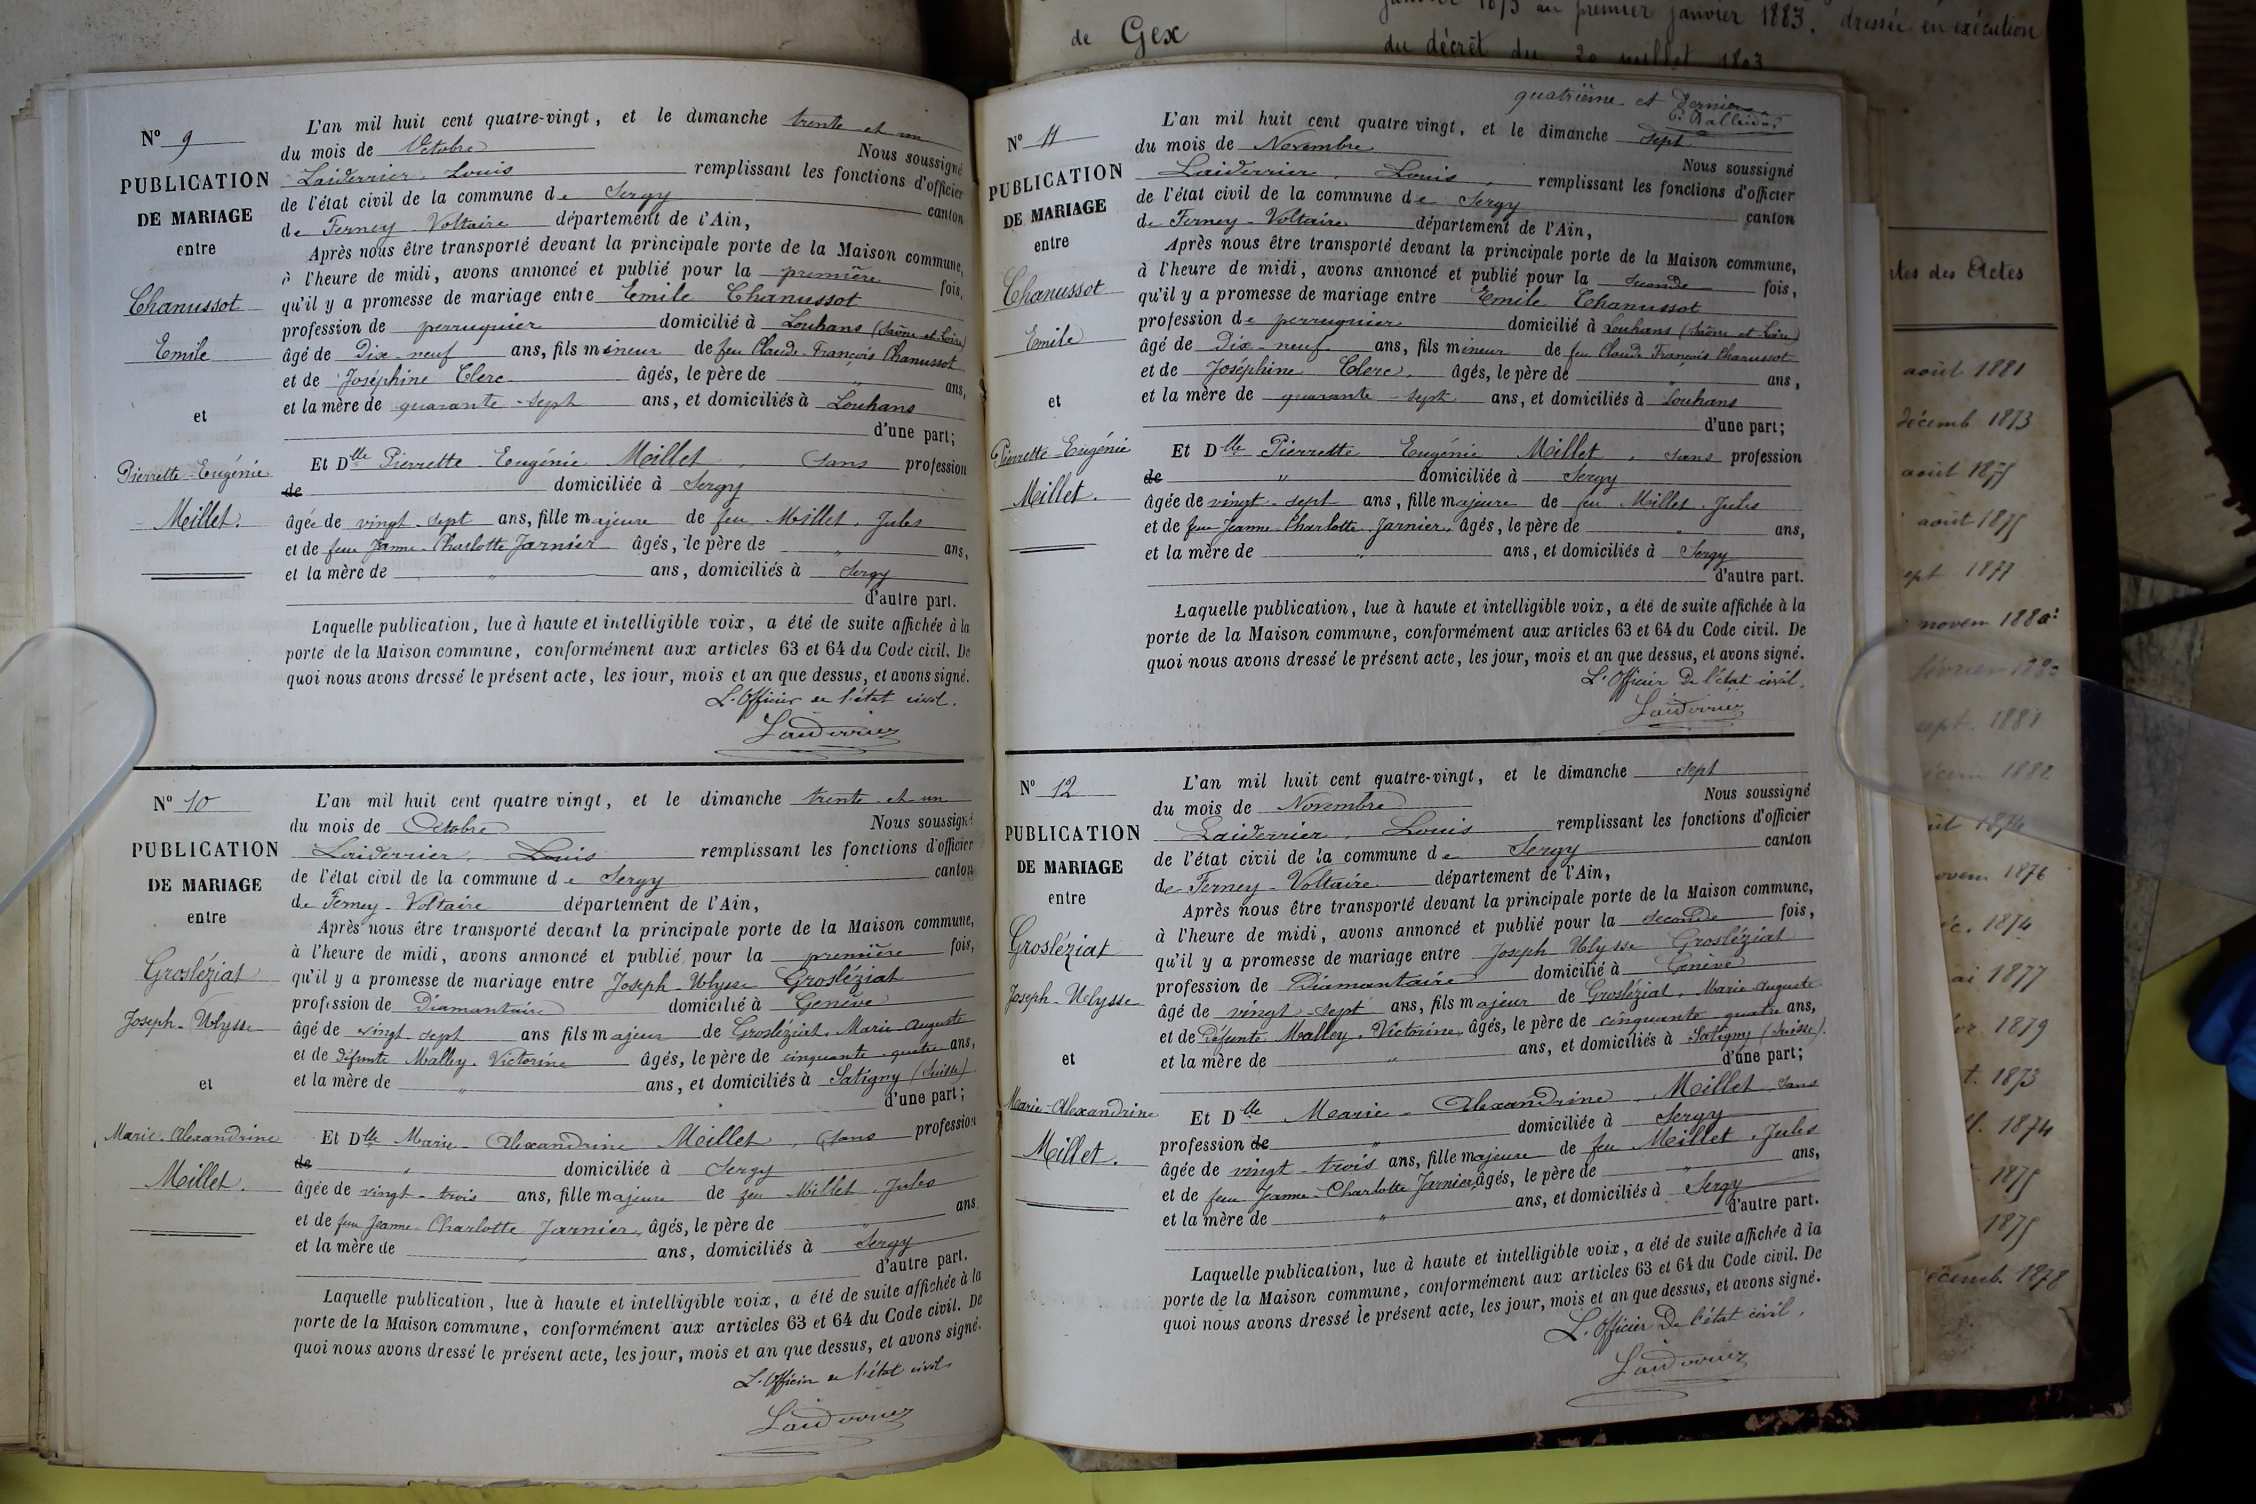 de Gex
janvier 1873 au premier janvier 1883, dressée en exécution
du décret du 20 juillet 1803
N° 9
PUBLICATION
DE MARIAGE
entre
Chanussot
Emile
et
Pierrette-Eugénie
Millet.
L'an mil huit cent quatre-vingt, et le dimanche trente et un
du mois de Octobre Nous soussigné
Laiderrier, Louis remplissant les fonctions d'officier
de l'état civil de la commune de Sergy canton
de Ferney-Voltaire département de l'Ain,
Après nous être transporté devant la principale porte de la Maison commune,
à l'heure de midi, avons annoncé et publié pour la première fois,
qu'il y a promesse de mariage entre Emile Chanussot
profession de perruquier domicilié à Louhans (Saône et Loire)
âgé de Dix-neuf ans, fils mineur de feu Claude-François Chanussot
et de Joséphine Clerc âgés, le père de " ans,
et la mère de quarante-sept ans, et domiciliés à Louhans
d'une part;
Et Dlle Pierrette-Eugénie Millet, sans profession
de domiciliée à Sergy
âgée de vingt-sept ans, fille majeure de feu Millet, Jules
et de feue Jeanne-Charlotte Jarnier âgés, le père de " ans,
et la mère de " ans, domiciliés à Sergy
d'autre part.
Laquelle publication, lue à haute et intelligible voix, a été de suite affichée à la
porte de la Maison commune, conformément aux articles 63 et 64 du Code civil. De
quoi nous avons dressé le présent acte, les jour, mois et an que dessus, et avons signé.
L'Officier de l'état civil.
Laiderrier
N° 10
PUBLICATION
DE MARIAGE
entre
Grosléziat
Joseph-Ulysse
et
Marie-Alexandrine
Millet.
L'an mil huit cent quatre vingt, et le dimanche trente et un
du mois de Octobre Nous soussigné
Laiderrier, Louis remplissant les fonctions d'officier
de l'état civil de la commune de Sergy canton
de Ferney-Voltaire département de l'Ain,
Après nous être transporté devant la principale porte de la Maison commune,
à l'heure de midi, avons annoncé et publié pour la première fois,
qu'il y a promesse de mariage entre Joseph-Ulysse Grosléziat
profession de Diamantaire domicilié à Genève
âgé de vingt-sept ans fils majeur de Grosléziat, Marie-Auguste
et de défunte Malley, Victorine âgés, le père de cinquante-quatre ans,
et la mère de " ans, et domiciliés à Satigny (Suisse)
d'une part;
Et Dlle Marie-Alexandrine Millet, sans profession
de " domiciliée à Sergy
âgée de vingt-trois ans, fille majeure de feu Millet, Jules
et de feue Jeanne-Charlotte Jarnier, âgés, le père de " ans
et la mère de " ans, domiciliés à Sergy
d'autre part.
Laquelle publication, lue à haute et intelligible voix, a été de suite affichée à la
porte de la Maison commune, conformément aux articles 63 et 64 du Code civil. De
quoi nous avons dressé le présent acte, les jour, mois et an que dessus, et avons signé.
L'Officier de l'état civil
Laiderrier
quatrième et dernier
N° 11
PUBLICATION
DE MARIAGE
entre
Chanussot
Emile
et
Pierrette-Eugénie
Millet.
L'an mil huit cent quatre vingt, et le dimanche sept
du mois de Novembre Nous soussigné
Laiderrier, Louis, remplissant les fonctions d'officier
de l'état civil de la commune de Sergy canton
de Ferney-Voltaire département de l'Ain,
Après nous être transporté devant la principale porte de la Maison commune,
à l'heure de midi, avons annoncé et publié pour la seconde fois,
qu'il y a promesse de mariage entre Emile Chanussot
profession de perruquier domicilié à Louhans (Saône et Loire)
âgé de Dix-neuf ans, fils mineur de feu Claude François Chanussot
et de Joséphine Clerc, âgés, le père de " ans,
et la mère de quarante-sept ans, et domiciliés à Louhans
d'une part;
Et Dlle Pierrette Eugénie Millet, sans profession
de " domiciliée à Sergy
âgée de vingt-sept ans, fille majeure de feu Millet, Jules
et de feue Jeanne Charlotte Jarnier, âgés, le père de " ans,
et la mère de " ans, et domiciliés à Sergy
d'autre part.
Laquelle publication, lue à haute et intelligible voix, a été de suite affichée à la
porte de la Maison commune, conformément aux articles 63 et 64 du Code civil. De
quoi nous avons dressé le présent acte, les jour, mois et an que dessus, et avons signé.
L'Officier De l'état civil.
Laiderrier
N° 12
PUBLICATION
DE MARIAGE
entre
Grosléziat
Joseph-Ulysse
et
Marie-Alexandrine
Millet.
L'an mil huit cent quatre-vingt, et le dimanche sept
du mois de Novembre Nous soussigné
Laiderrier, Louis remplissant les fonctions d'officier
de l'état civil de la commune de Sergy canton
de Ferney-Voltaire département de l'Ain,
Après nous être transporté devant la principale porte de la Maison commune,
à l'heure de midi, avons annoncé et publié pour la seconde fois,
qu'il y a promesse de mariage entre Joseph Ulysse Grosléziat
profession de Diamantaire domicilié à Genève
âgé de vingt-sept ans, fils majeur de Grosléziat, Marie Auguste
et de Défunte Malley, Victorine, âgés, le père de cinquante-quatre ans,
et la mère de " ans, et domiciliés à Satigny (Suisse).
d'une part;
Et Dlle Marie-Alexandrine Millet sans
profession de " domiciliée à Sergy
âgée de vingt-trois ans, fille majeure de feu Millet, Jules
et de feue Jeanne-Charlotte Jarnier, âgés, le père de " ans,
et la mère de " ans, et domiciliés à Sergy
d'autre part.
Laquelle publication, lue à haute et intelligible voix, a été de suite affichée à la
porte de la Maison commune, conformément aux articles 63 et 64 du Code civil. De
quoi nous avons dressé le présent acte, les jour, mois et an que dessus, et avons signé.
L'Officier De l'état civil.
Laiderrier
des Actes
août 1881
décemb 1873
août 1875
août 1875
sept 1877
novem 1880
février 1880
sept. 1881
1882
1874
novem 1876
1874
1877
1879
1873
1874
1875
1875
décemb. 1878